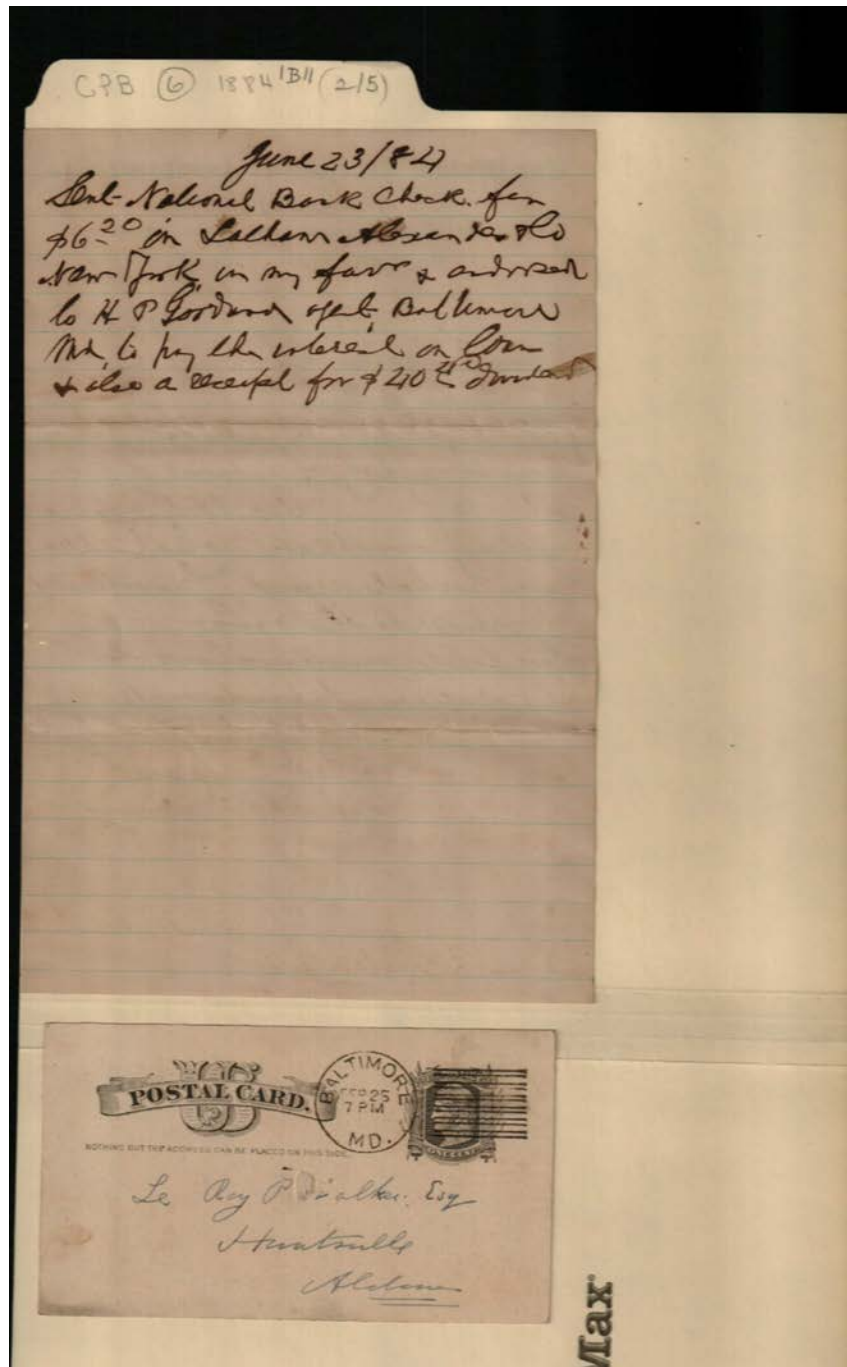 CPB 6 1884 "B" (2/5)
June 23/84
Sent National Bank Check for
$6.20 on Latham Alexander & Co
New York, in my favor & endorsed
to H P Goddard agent, Baltimore
Md, to pay the interest on loan
& also a receipt for $40 dividend
POSTAL CARD.
NOTHING BUT THE ADDRESS CAN BE PLACED ON THIS SIDE.
BALTIMORE
25
7 PM
MD.
Le Roy P Walker, Esq
Huntsville
Alabama
Max